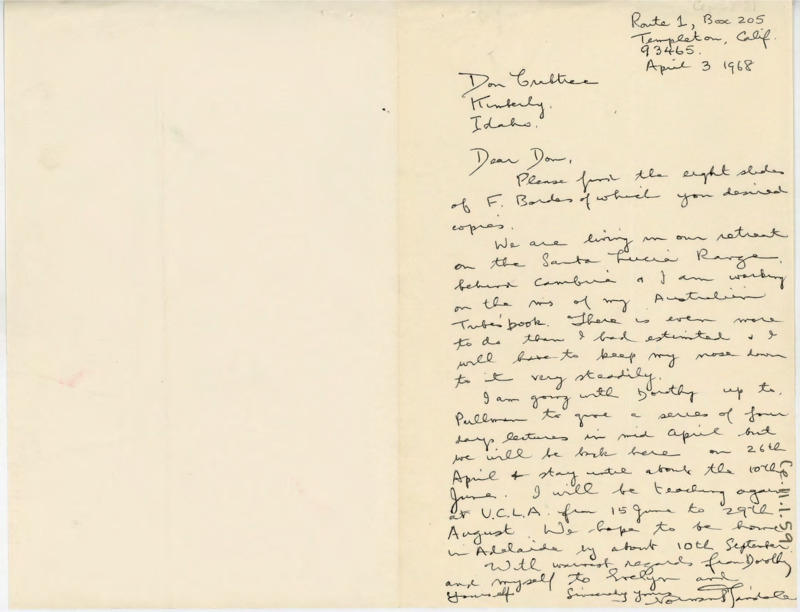 Route 1, Box 205
Templeton, Calif.
93465.
April 3 1968
Don Crabtree
Kimberly.
Idaho.
Dear Don,
Please find the eight slides
of F. Bordes of which you desired
copies.
We are living in our retreat
on the Santa Lucia Range,
behind Cambria & I am working
on the ms of my Australian
Tribes book. There is even more
to do than I had estimated & I
will have to keep my nose down
to it very steadily.
I am going with Dorothy up to
Pullman to give a series of four
days lectures in mid April but
we will be back here on 26th
April & stay until about the 10th
June. I will be teaching again
at U.C.L.A. from 15 June to 29th
August. We hope to be home
in Adelaide by about 10th September.
With warmest regards from Dorothy
and myself to Evelyn and
yourself Sincerely yours
Norman Tindale